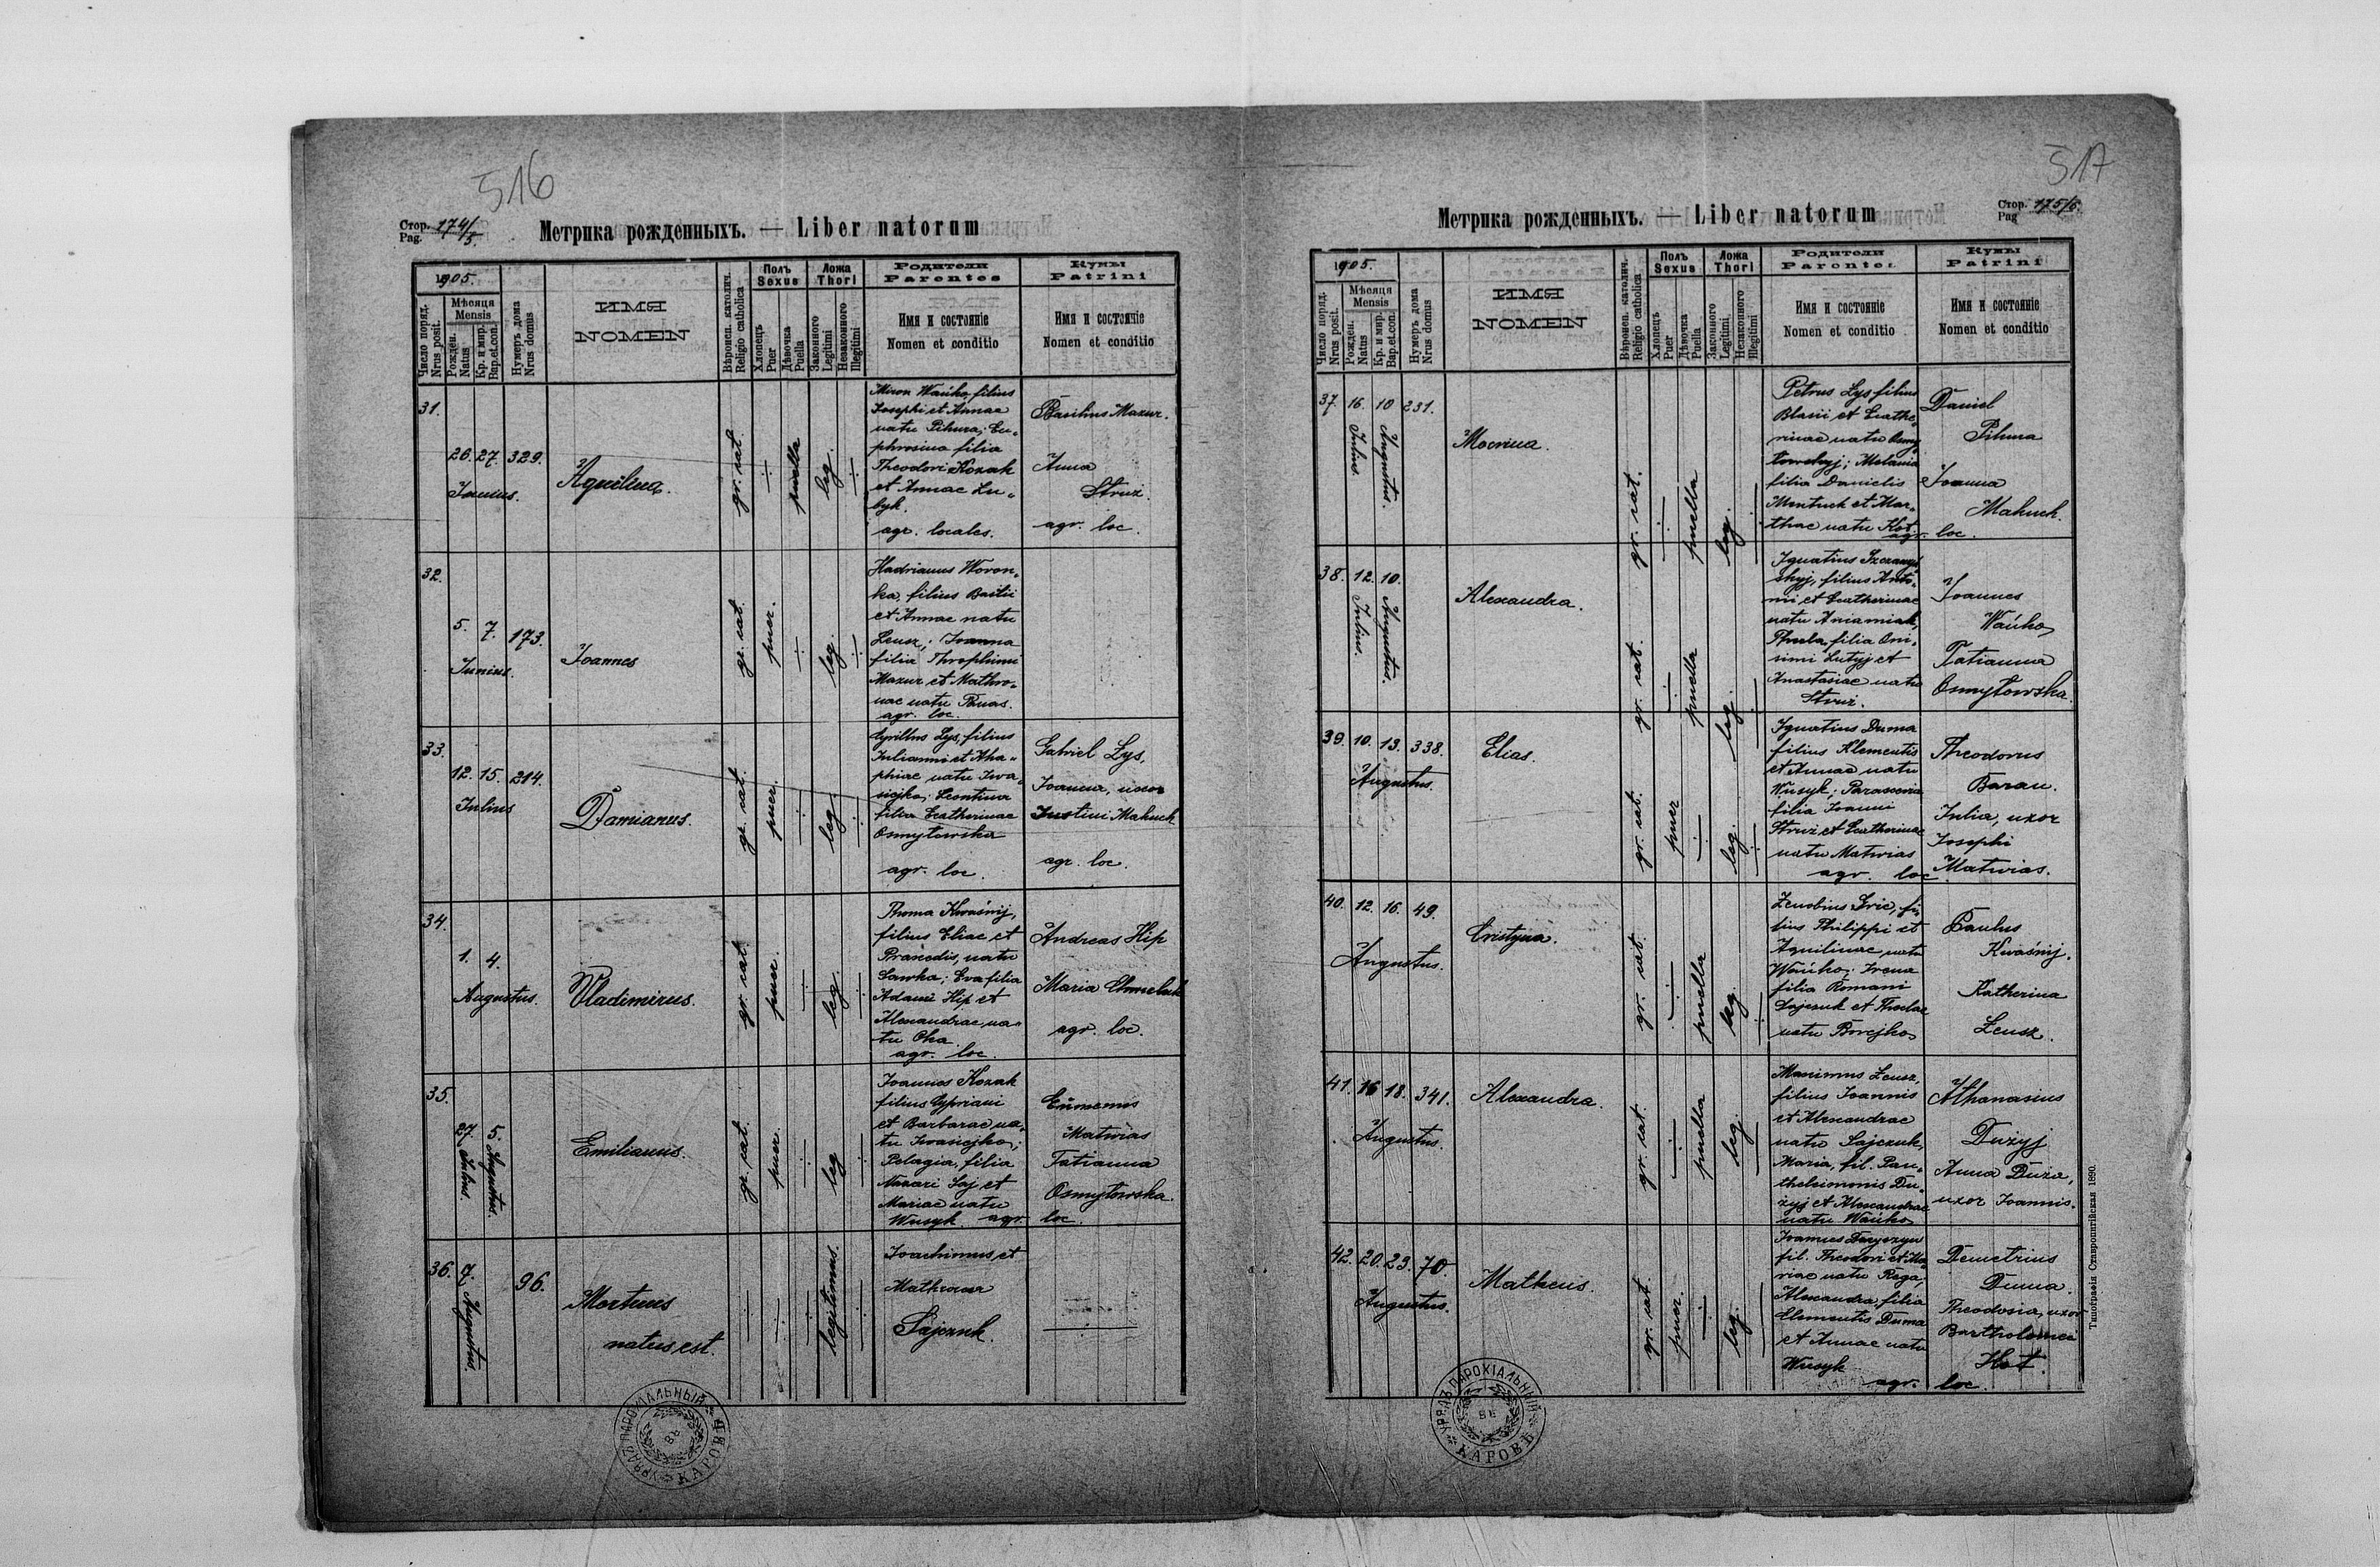 516
Стор. 174/5
Pag.
Метрика рожденныхъ. — Liber natorum
1905.
Число поряд.
Nrus posit.
Мѣсяца
Mensis
Рожден.
Natus
Кр. и мир.
Bap.et.con.
Нумеръ дома
Nrus domus
ИМЯ
NOMEN
Вѣроисп. католич.
Religio catholica
Полъ
Sexus
Хлопецъ
Puer
Дѣвочка
Puella
Ложа
Thori
Законного
Legitimi
Незаконного
Illegitimi
Родители
Parentes
Имя и состояніе
Nomen et conditio
Кумы
Patrini
Имя и состояніе
Nomen et conditio
31.
26. 27. 329.
Junius.
Aquilina.
gr. cat.
puella
leg.
Miron Wańko, filius
Josephi et Annae
natu Pihura; Eu-
phrosina filia
Theodori Kozak
et Annae Lu-
byk.
agr. locales.
Basilius Mazur.
Anna
Struz.
agr. loc.
32.
5. 7. 173.
Junius.
Joannes
gr. cat.
puer.
leg.
Hadrianus Woron-
ka, filius Basilii
et Annae natu
Leusz; Joanna
filia Throphimi
Mazur et Mathro-
nae natu Panas.
agr. loc.
33.
12. 15. 214.
Julius
Damianus.
gr. cat.
puer.
leg.
Cyrillus Lys, filius
Julianni et Aha-
phiae natu Iwa-
siejko; Leontina
filia Catherinae
Osmyłowska
agr. loc.
Gabriel Lys,
Joanna, uxor
Justini Mahuch
agr. loc.
34.
1. 4.
Augustus.
Vladimirus.
gr. cat.
puer.
leg.
Thoma Kwaśnij,
filius Eliae et
Praxedis, natu
Sawka; Eva filia
Adami Hip et
Alexandrae, na-
tu Oha.
agr. loc.
Andreas Hip
Maria Chmeluk
agr. loc.
35.
27. Julius.
5. Augustus.
Emilianus.
gr. cat.
puer.
leg
Joannes Kozak
filius Cypriani
et Barbarae na-
tu Iwasiejko;
Pelagia, filia
Nazari Saj et
Mariae natu
Wusyk agr. loc.
Matwias
Tatianna
Osmyłowska.
36.
7. Augustus.
96.
Mortuus
natus est.
legitimus.
Joachimus et
Mathrona
Sajczuk.
УРЯДЪ ПАРОХІАЛЬНЫЙ
КАРОВѢ
517
Стор. 175/5
Pag
Метрика рожденныхъ. — Liber natorum
1905.
Число поряд.
Nrus posit.
Мѣсяца
Mensis
Рожден.
Natus
Кр. и мир.
Bap.et.con.
Нумеръ дома
Nrus domus
ИМЯ
NOMEN
Вѣроисп. католич.
Religio catholica
Полъ
Sexus
Хлопецъ
Puer
Дѣвочка
Puella
Ложа
Thori
Законного
Legitimi
Незаконного
Illegitimi
Родители
Parentes
Имя и состояніе
Nomen et conditio
Кумы
Patrini
Имя и состояніе
Nomen et conditio
37. 16. 10 231.
Julius.
Augustus.
Mocrina.
gr. cat.
puella
leg.
Petrus Lys filius
Blasii et Cathe-
rinae natu Osmy-
łowskyj; Melania
filia Danielis
Mentuch et Mar-
thae natu Kot.
agr. loc.
Daniel
Pihura
Joanna
Mahuch.
38. 12. 10.
Julius.
Augustus.
Alexandra.
gr. cat.
puella
leg.
filius Anto-
nii et Catherinae
natu
Thecla, filia Oni-
simi Lutyj et
Anastasiae natu
Struz.
Joannes
Wańko,
Tatianna
Osmyłowska.
39. 10. 13. 338.
Augustus.
Elias.
gr. cat.
puer
leg.
Ignatius Duma
filius Klementis
et Annae natu
Wusyk; Parascevia
filia Joanni
Struz et Catherinae
natu Matwias
agr. loc
Theodorus
Baran.
Julia, uxor
Josephi
Matwias.
40. 12. 16. 49.
Augustus.
Cristyna.
gr. cat.
puella
leg.
Zenobius Hric, fi-
lius Philippi et
Aquilinae natu
Wańko; Irena
filia Romani
Sajczuk et Theclae
natu
Paulus
Kwaśnij.
Katherina
Leusz.
41. 16 18. 341.
Augustus.
Alexandra.
gr. cat.
puella
leg.
Maximus Leusz,
filius Joannis
et Alexandrae
natu Sajczuk,
Maria, fil. Pan-
theleimonis Du-
żyj et Alexandrae
natu Wańko
Athanasius
Dużyj
Anna Duża,
uxor Joannis.
42. 20. 23. 70.
Augustus.
Matheus.
gr. cat.
puer.
leg.
Joannes
fil. Theodori et Ma-
riae natu Rega;
Alexandra, filia
Clementis Duma
et Annae natu
Wusyk
agr. loc.
Demetrius
Duma.
Theodosia, uxor
Bartholomei
Kot.
УРЯДЪ ПАРОХІАЛЬНЫЙ
КАРОВѢ
Типографія Ставропигійская 1890.